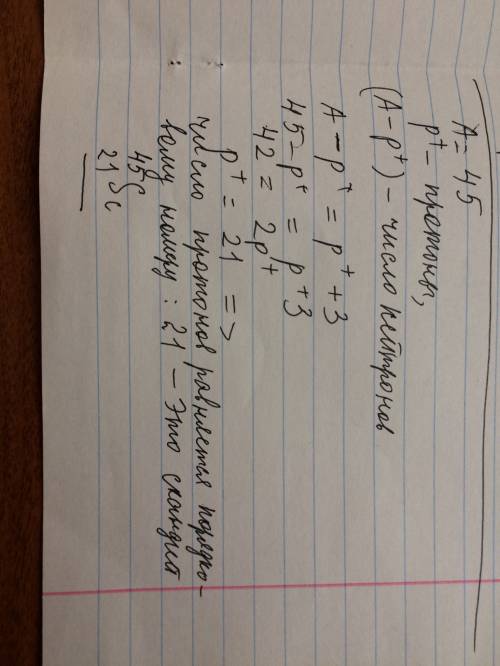 A = 45
p⁺ - протоны,
(A - p⁺) - число нейтронов
A - p⁺ = p⁺ + 3
45 - p⁺ = p + 3
42 = 2p⁺
p⁺ = 21 =>
число протонов равняется порядко-
вому номеру : 21 - Это скандий
45
21 Sc